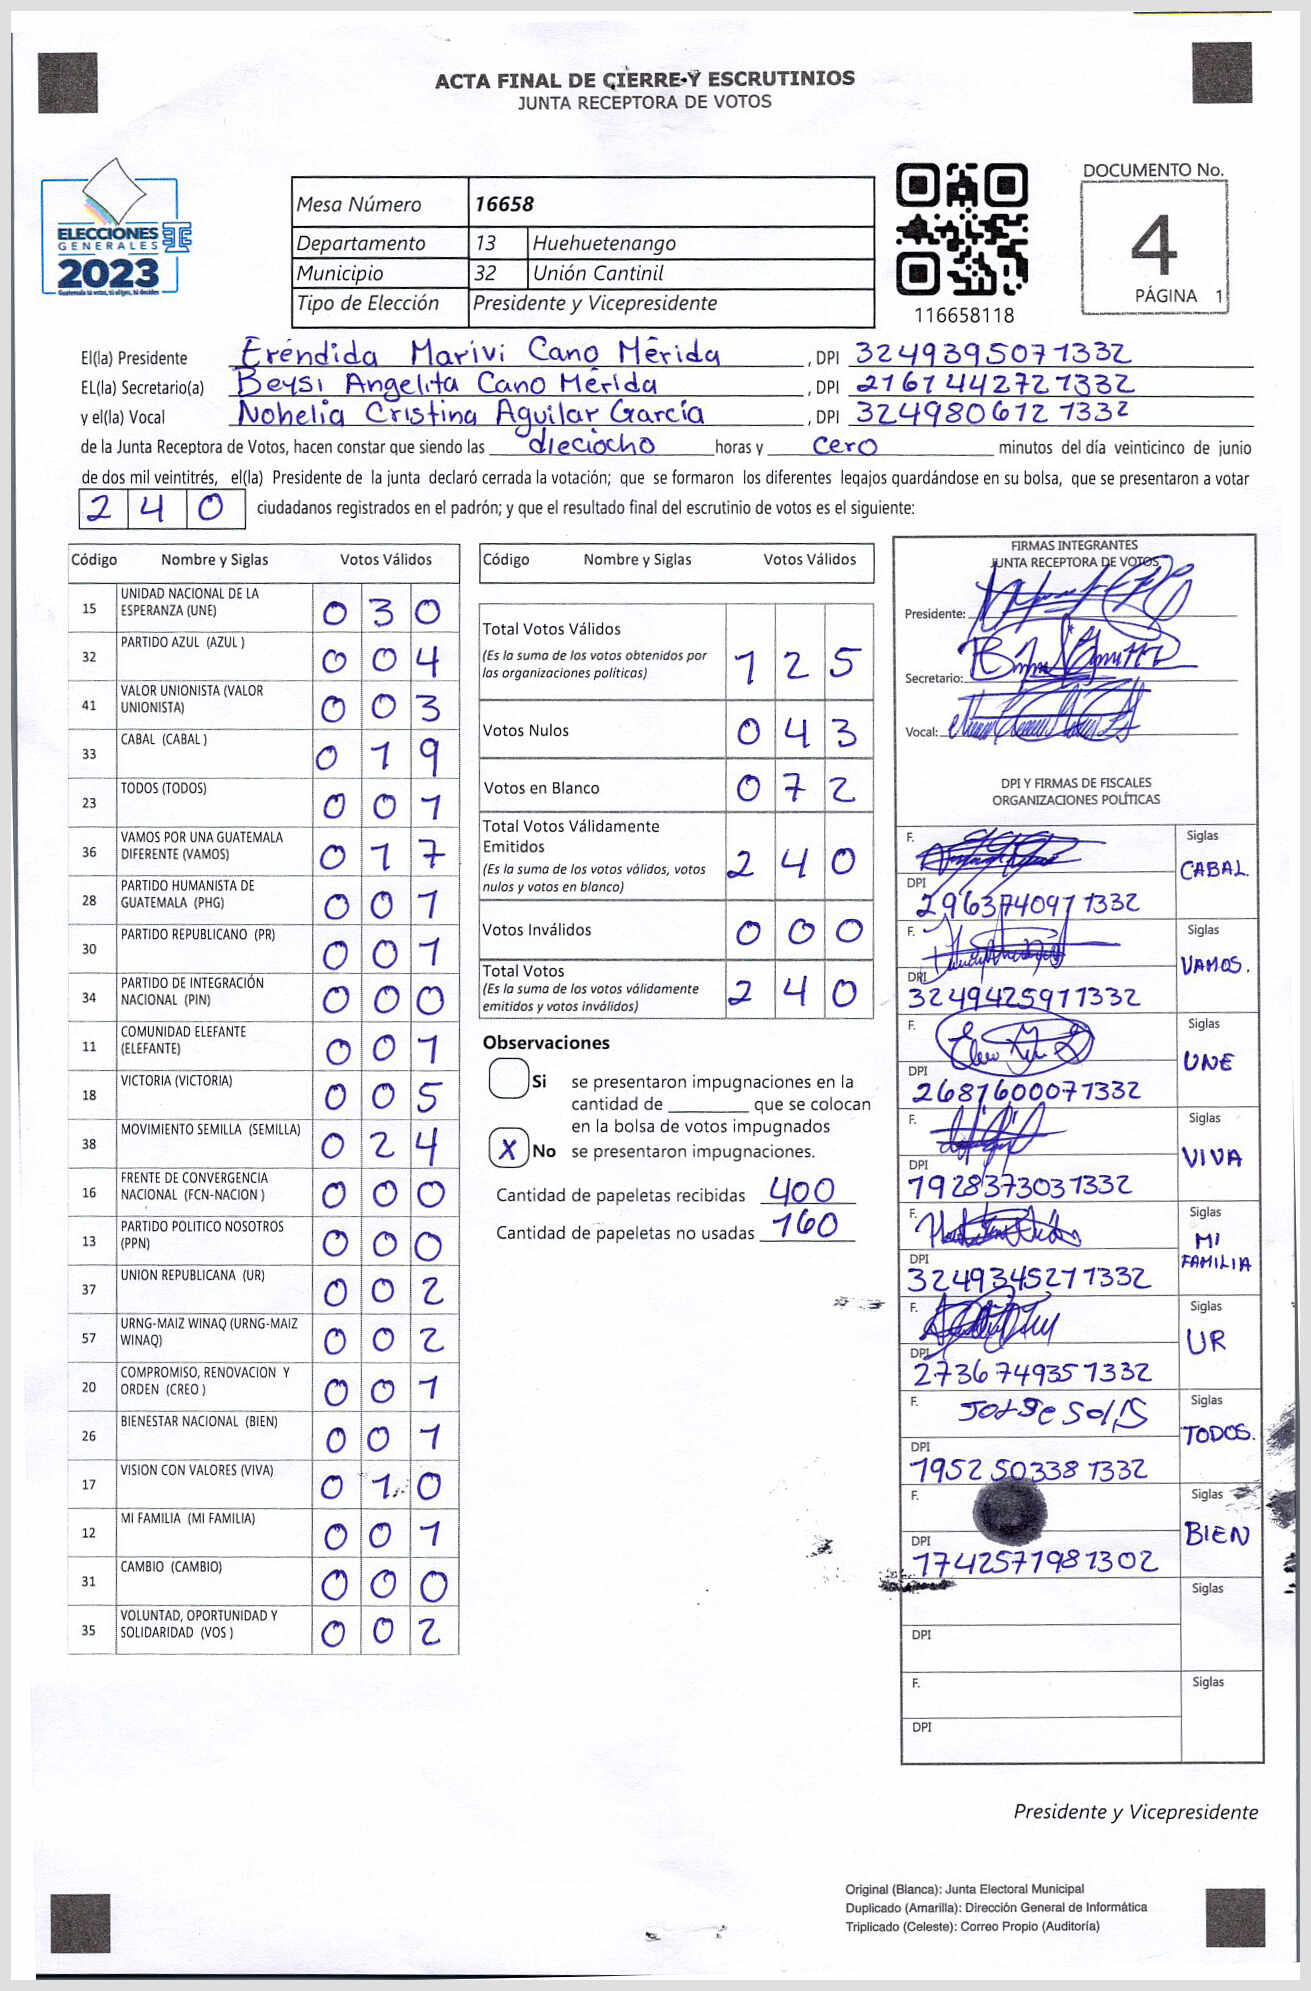 ACTA FINAL DE CIERRE Y ESCRUTINIOS
JUNTA RECEPTORA DE VOTOS
ELECCIONES
GENERALES
2023
Guatemala tú votas, tú eliges, tú decides
Mesa Número 16658
Departamento 13 Huehuetenango
Municipio 32 Unión Cantinil
Tipo de Elección Presidente y Vicepresidente
116658118
DOCUMENTO No.
4
PÁGINA 1
El(la) Presidente Eréndida Marivi Cano Mérida, DPI 3249395071332
EL(la) Secretario(a) Beysi Angelita Cano Mérida, DPI 2161442721332
y el(la) Vocal Nohelia Cristina Aguilar García, DPI 3249806121332
de la Junta Receptora de Votos, hacen constar que siendo las dieciocho horas y cero minutos del día veinticinco de junio
de dos mil veintitrés, el(la) Presidente de la junta declaró cerrada la votación; que se formaron los diferentes legajos guardándose en su bolsa, que se presentaron a votar
240 ciudadanos registrados en el padrón; y que el resultado final del escrutinio de votos es el siguiente:
Código Nombre y Siglas Votos Válidos
15 UNIDAD NACIONAL DE LA ESPERANZA (UNE) 030
32 PARTIDO AZUL (AZUL ) 004
41 VALOR UNIONISTA (VALOR UNIONISTA) 003
33 CABAL (CABAL ) 019
23 TODOS (TODOS) 001
36 VAMOS POR UNA GUATEMALA DIFERENTE (VAMOS) 017
28 PARTIDO HUMANISTA DE GUATEMALA (PHG) 001
30 PARTIDO REPUBLICANO (PR) 001
34 PARTIDO DE INTEGRACIÓN NACIONAL (PIN) 000
11 COMUNIDAD ELEFANTE (ELEFANTE) 001
18 VICTORIA (VICTORIA) 005
38 MOVIMIENTO SEMILLA (SEMILLA) 024
16 FRENTE DE CONVERGENCIA NACIONAL (FCN-NACION ) 000
13 PARTIDO POLITICO NOSOTROS (PPN) 000
37 UNION REPUBLICANA (UR) 002
57 URNG-MAIZ WINAQ (URNG-MAIZ WINAQ) 002
20 COMPROMISO, RENOVACION Y ORDEN (CREO ) 001
26 BIENESTAR NACIONAL (BIEN) 001
17 VISION CON VALORES (VIVA) 010
12 MI FAMILIA (MI FAMILIA) 001
31 CAMBIO (CAMBIO) 000
35 VOLUNTAD, OPORTUNIDAD Y SOLIDARIDAD (VOS ) 002
Código Nombre y Siglas Votos Válidos
Total Votos Válidos 125
(Es la suma de los votos obtenidos por
las organizaciones políticas)
Votos Nulos 043
Votos en Blanco 072
Total Votos Válidamente
Emitidos 240
(Es la suma de los votos válidos, votos
nulos y votos en blanco)
Votos Inválidos 000
Total Votos 240
(Es la suma de los votos válidamente
emitidos y votos inválidos)
Observaciones
Si se presentaron impugnaciones en la
cantidad de ________ que se colocan
en la bolsa de votos impugnados
X No se presentaron impugnaciones.
Cantidad de papeletas recibidas 400
Cantidad de papeletas no usadas 160
FIRMAS INTEGRANTES
JUNTA RECEPTORA DE VOTOS
Presidente:
Secretario:
Vocal:
DPI Y FIRMAS DE FISCALES
ORGANIZACIONES POLÍTICAS
F. Siglas CABAL.
DPI 2963740971332
F. Siglas VAMOS.
DPI 3249425911332
F. Siglas UNE
DPI 2681600071332
F. Siglas VIVA
DPI 1928373031332
F. Siglas MI FAMILIA
DPI 3249345271332
F. Siglas UR
DPI 2736749351332
F. Jorge Solis Siglas TODOS.
DPI 1952503381332
F. Siglas BIEN
DPI 1742571981302
F. Siglas
DPI
F. Siglas
DPI
Presidente y Vicepresidente
Original (Blanca): Junta Electoral Municipal
Duplicado (Amarilla): Dirección General de Informática
Triplicado (Celeste): Correo Propio (Auditoría)